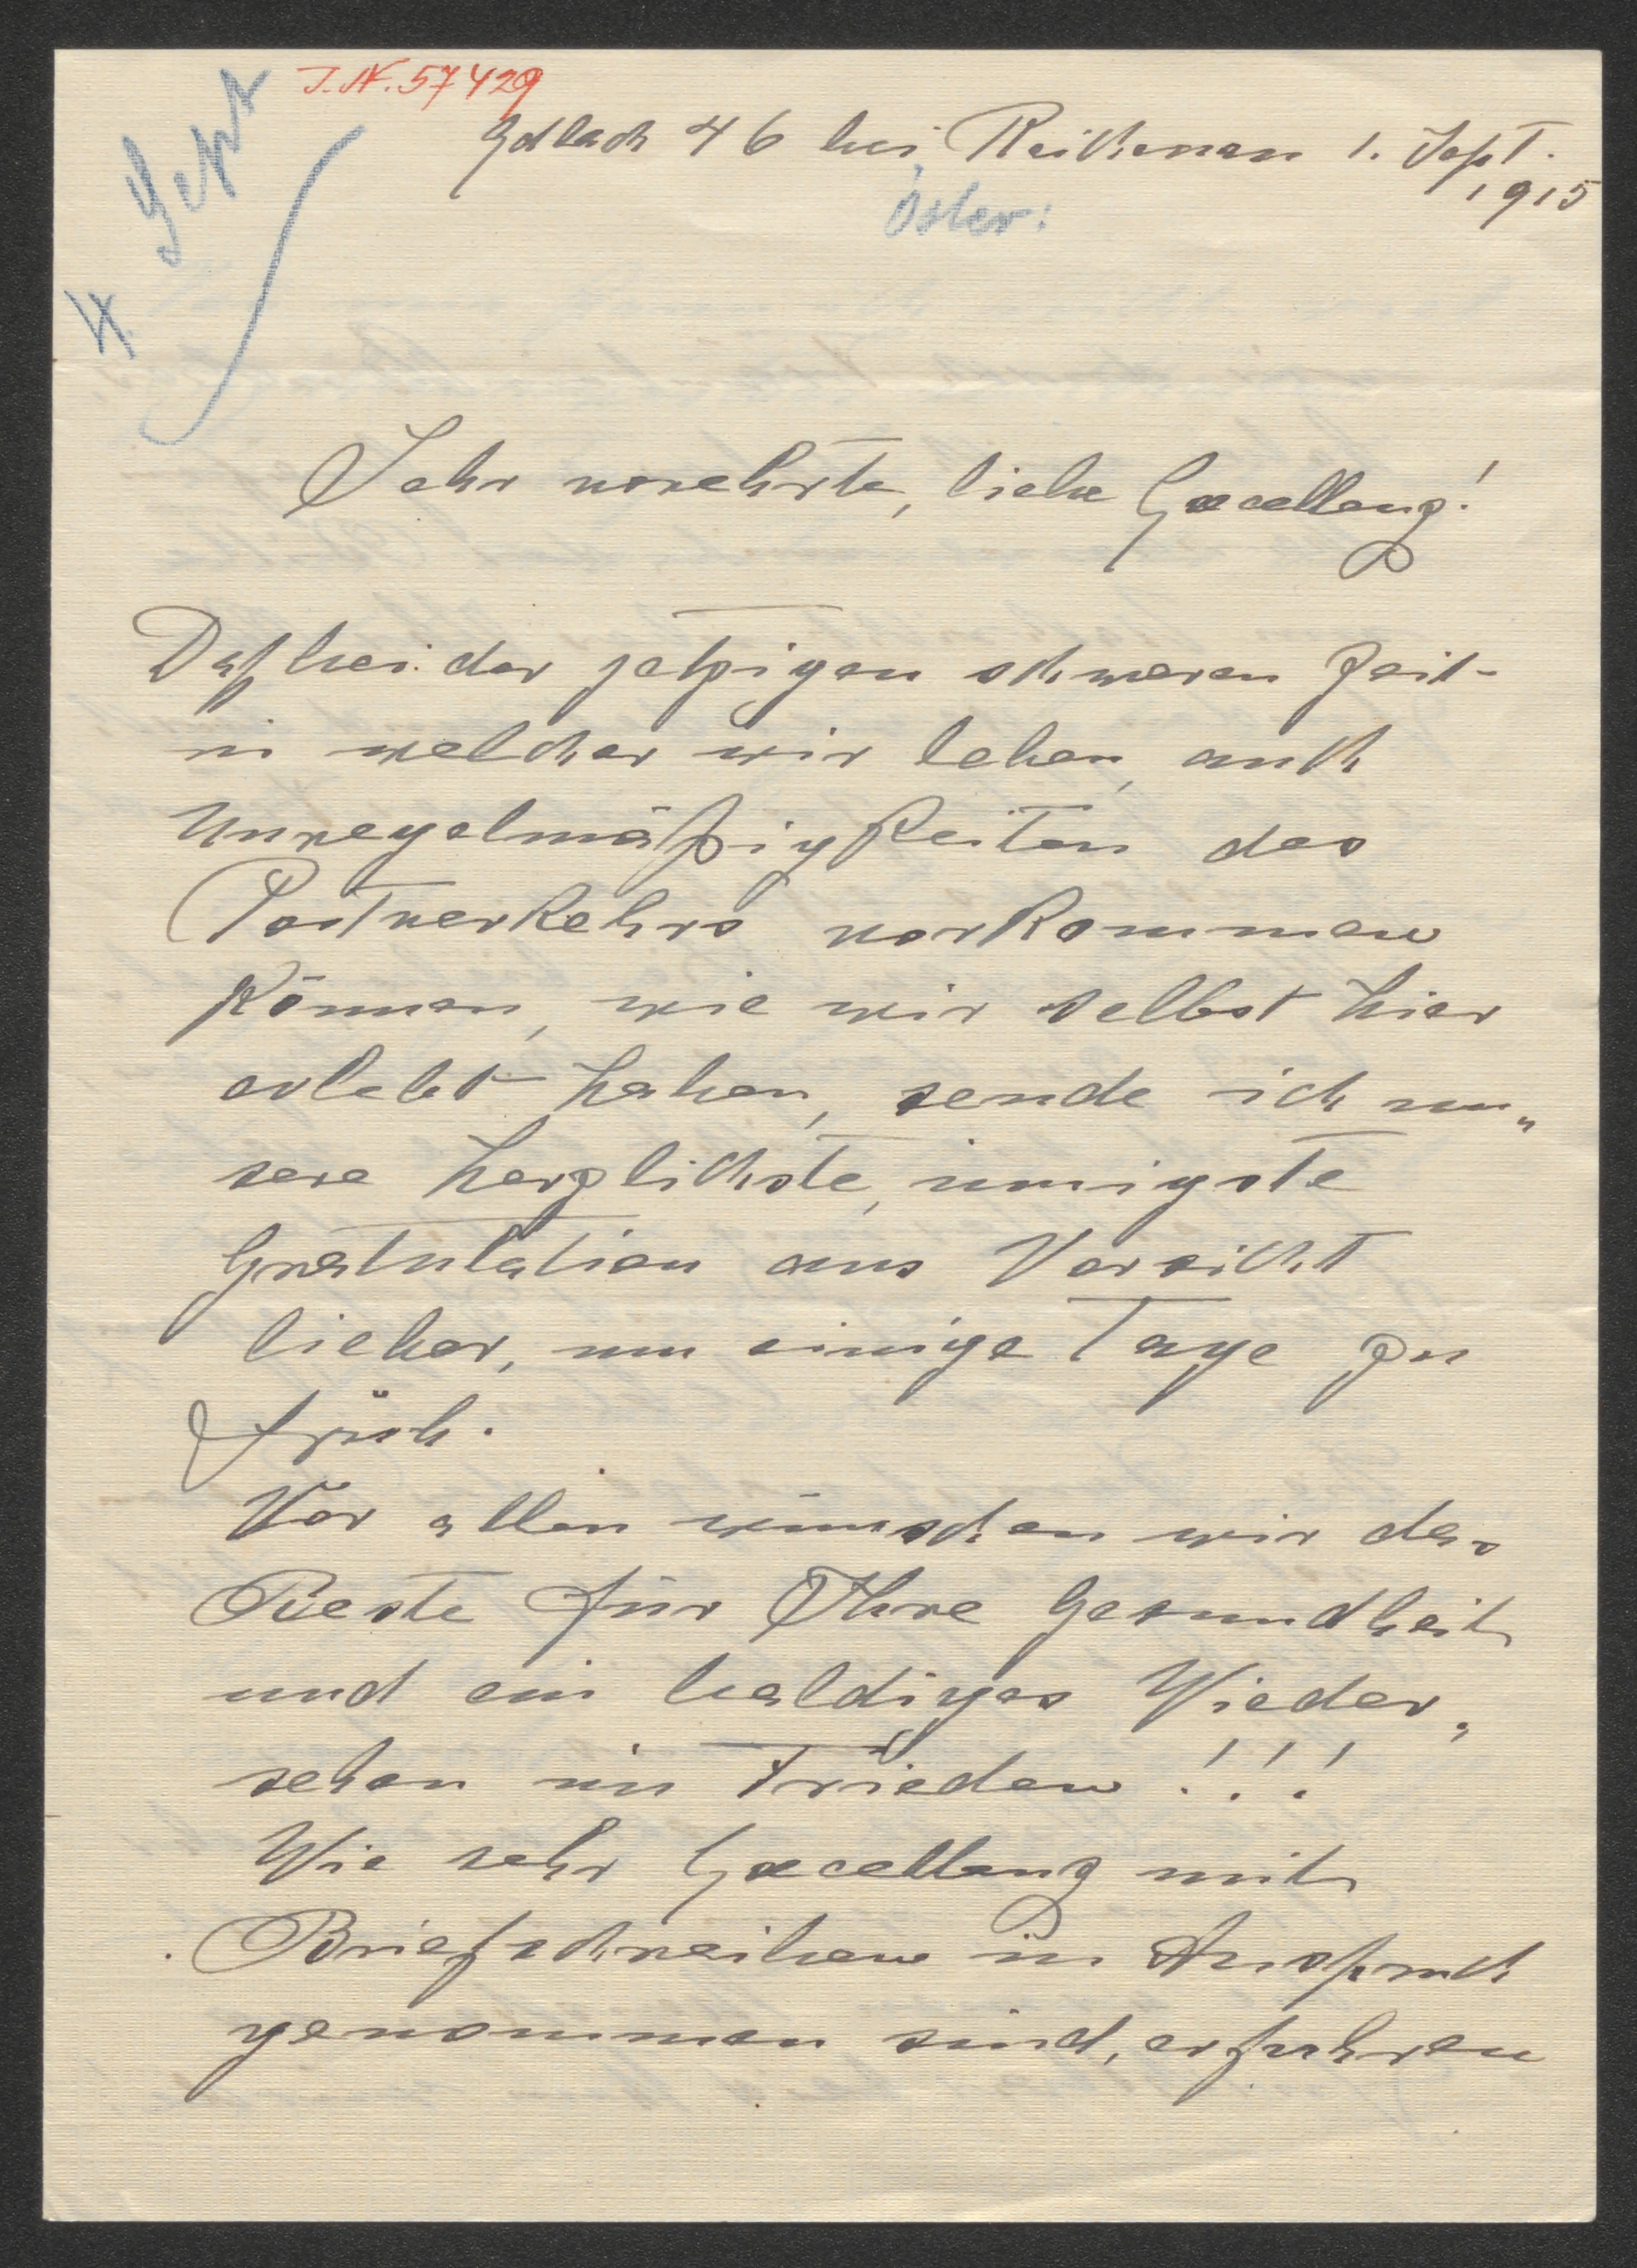 J.N. 57429
Edlach 46 bei Reichenau 1. Sept.
1915
Öster:
Sehr verehrte, liebe Excellenz!
Daß bei der jetzigen schweren Zeit
in welcher wir leben, auch
Unregelmäßigkeiten des
Postverkehrs vorkommen
können, wie wir selbst hier
erlebt haben, sende ich un„
sere herzlichste, innigste
Gratulation aus Vorsicht
lieber, um einige Tage zu
früh.
Vor allen wünschen wir das
Beste für Ihre Gesundheit
und ein baldiges Wieder„
sehen im Frieden!!!
Wie sehr Excellenz mit
Briefschreiben in Anspruch
genommen sind, erfuhren